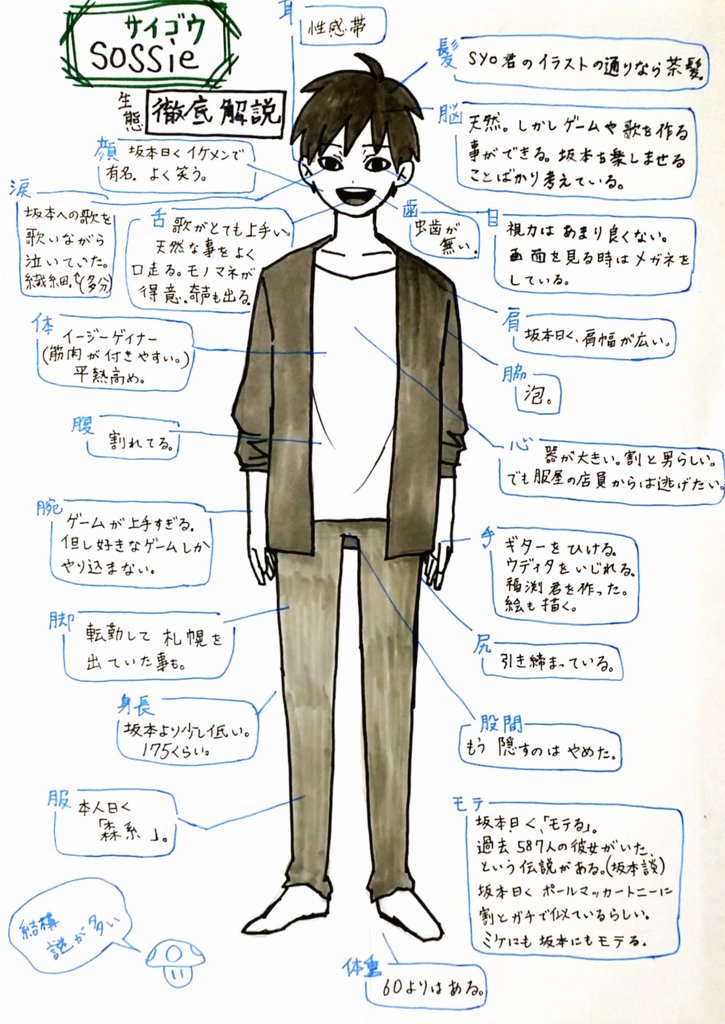 サイゴウ
SOSSie
生態
徹底解説
耳
性感帯
髪
SYO君のイラストの通りなら茶髪。
脳
天然。しかしゲームや歌を作る
事ができる。坂本を楽しませる
ことばかり考えている。
顔
坂本曰くイケメンで
有名。よく笑う。
涙
坂本への歌を
歌いながら
泣いていた。
繊細。(多分)
舌
歌がとても上手い。
天然な事をよく
口走る。モノマネが
得意。奇声も出る。
歯
虫歯が
無い。
目
視力はあまり良くない。
画面を見る時はメガネを
している。
体
イージーゲイナー
(筋肉が付きやすい。)
平熱高め。
肩
坂本曰く、肩幅が広い。
脇
泡。
腹
割れてる。
心
器が大きい。割と男らしい。
でも服屋の店員からは逃げたい。
腕
ゲームが上手すぎる。
但し好きなゲームしか
やり込まない。
手
ギターをひける。
ウディタをいじれる。
稲渕君を作った。
絵も描く。
脚
転勤して札幌を
出ていた事も。
尻
引き締まっている。
身長
坂本より少し低い。
175くらい。
股間
もう隠すのはやめた。
服
本人曰く
「森系」。
モテ
坂本曰く、「モテる」。
過去587人の彼女がいた、
という伝説がある。(坂本談)
坂本曰くポールマッカートニーに
割とガチで似ているらしい。
ミケにも坂本にもモテる.
結構
謎が多い
体重
60よりはある。